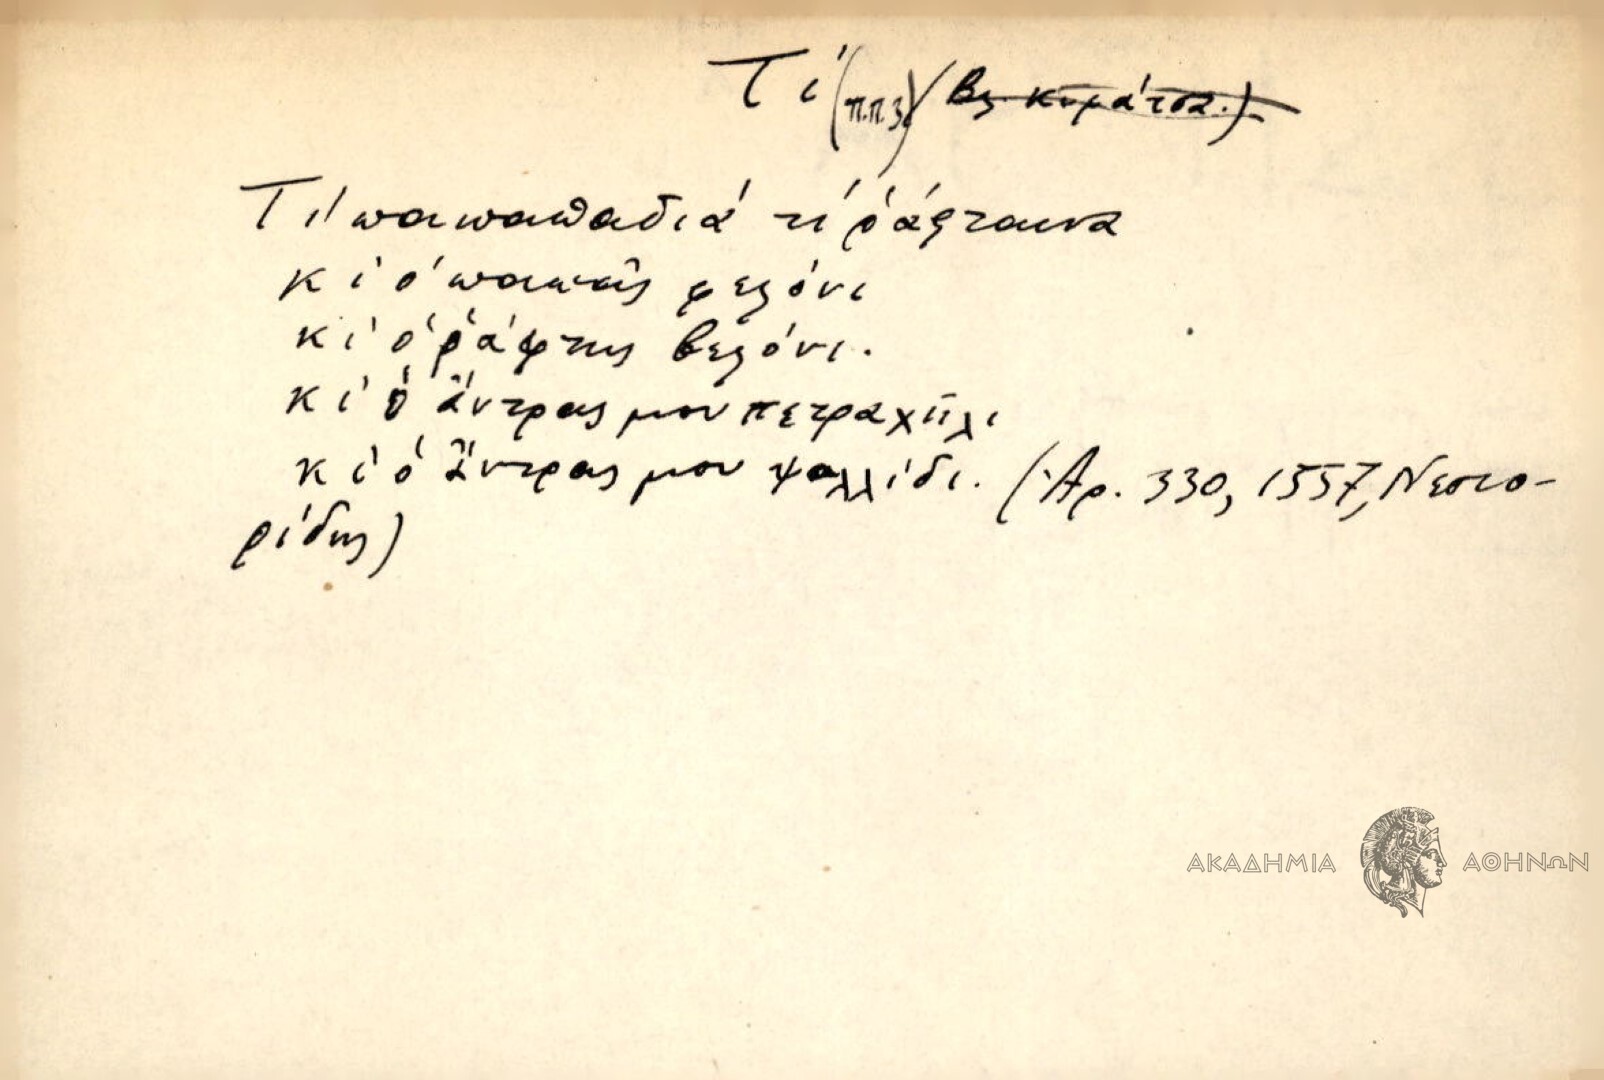 Τί (π.π.3) (Βλ. κυμάτσα.)
Τί παπαπαδιά τί ῥάφταινα
κι ὁ παπᾶς φελόνι
κι ὁ ῥάφτης βελόνι.
κι ὁ ἄντρας μου πετραχῆλι
κι ὁ ἄντρας μου ψαλλίδι. (Ἀρ. 330, 1557, Νεστο-
ρίδης)
ΑΚΑΔΗΜΙΑ ΑΘΗΝΩΝ